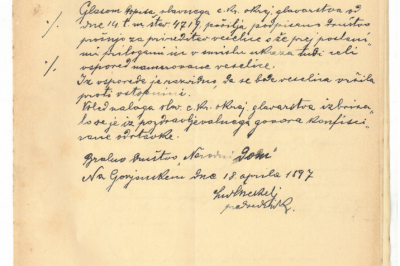 Glasom dopisa slavnega c. kr. okraj. glavarstva od
dne 14 t. m. štv. 4217, pošilja podpisano društvo
prošnjo za prireditev veselice s že prej poslani
mi prilogami in v smislu ukaza tudi celi
vspored nameravane veselice.
Iz vsporeda je razvidno, da se bode veselica vršila
proti vstopnini.
Vsled naloga slav. c. kr. okraj. glavarstva izbrisa
lo se je iz pozdravljevalnega govora konfisci
rane odstavke.
Bralno društvo "Narodni Dom"
Na Gorjanskem dne 18 aprila 1897
predsednik.